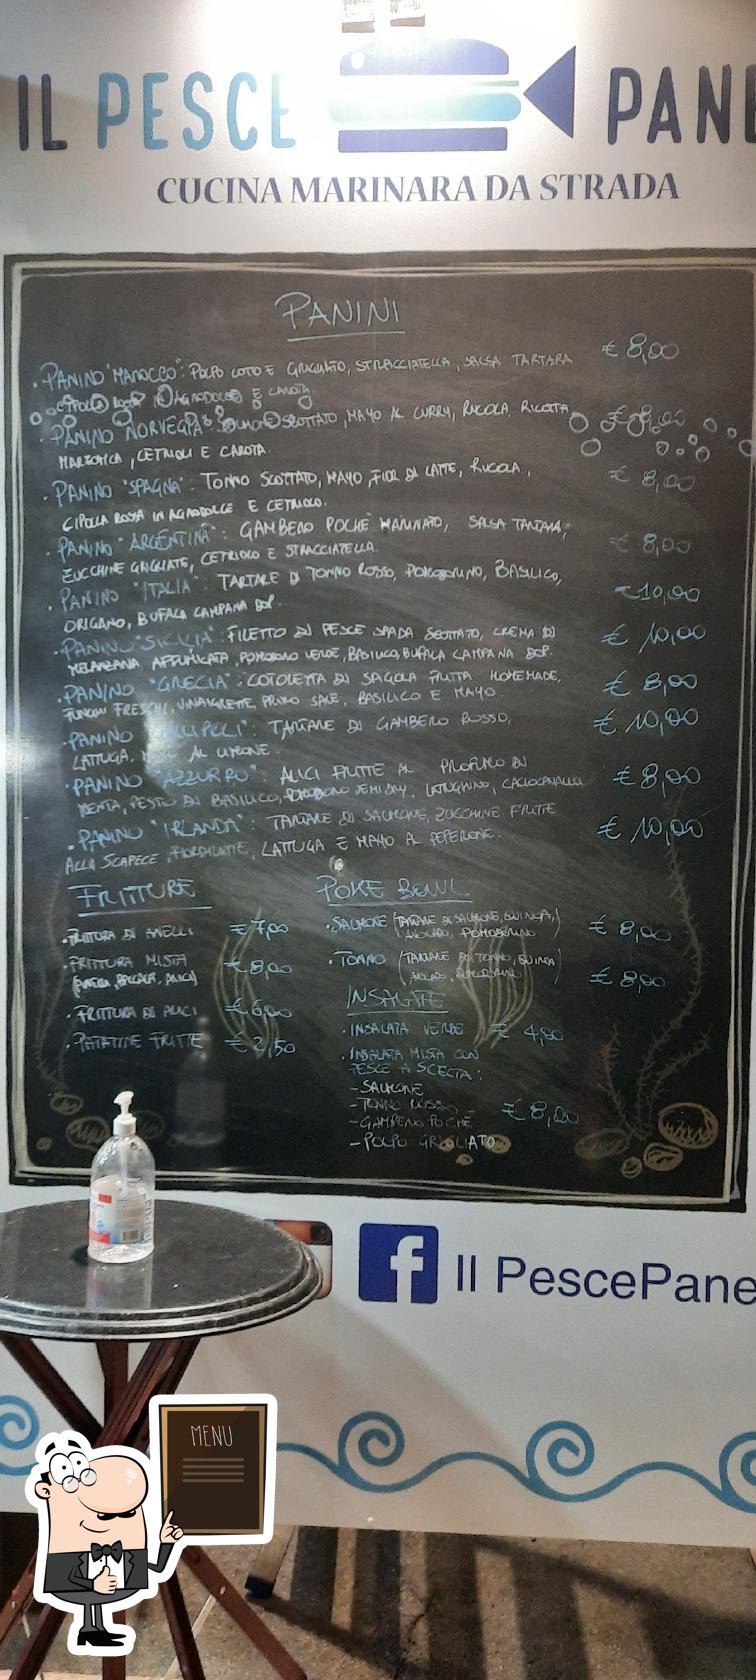 IL PESCE PANE
CUCINA MARINARA DA STRADA
PANINI
• PANINO "MAROCCO": POLPO COTTO E GRIGLIATO, STRACCIATELLA, SALSA TARTARA € 8,00
CIPOLLA ROSSA IN AGRODOLCE E CAROTA.
• PANINO "NORVEGIA": SALMONE SCOTTATO, MAYO AL CURRY, RUCOLA, RICOTTA € 8,00
MARZOTICA, CETRIOLI E CAROTA.
• PANINO "SPAGNA": TONNO SCOTTATO, MAYO, FIOR DI LATTE, RUCOLA, € 8,00
CIPOLLA ROSSA IN AGRODOLCE E CETRIOLO.
• PANINO "ARGENTINA": GAMBERO POCHÈ MARINATO, SALSA TARTARA, € 8,00
ZUCCHINE GRIGLIATE, CETRIOLO E STRACCIATELLA.
• PANINO "ITALIA": TARTARE DI TONNO ROSSO, POMODORINO, BASILICO, €10,00
ORIGANO, BUFALA CAMPANA DOP.
• PANINO "SICILIA": FILETTO DI PESCE SPADA SCOTTATO, CREMA DI € 10,00
MELANZANA AFFUMICATA, POMODORO VERDE, BASILICO, BUFALA CAMPANA DOP.
• PANINO "GRECIA": COTOLETTA DI SPIGOLA FRITTA HOMEMADE, € 8,00
FUNGHI FRESCHI, VINAIGRETTE, PRIMO SALE, BASILICO E MAYO.
• PANINO "GALLIPOLI": TARTARE DI GAMBERO ROSSO, € 10,00
LATTUGA, MAYO AL LIMONE.
• PANINO "AZZURRO": ALICI FRITTE AL PROFUMO DI € 8,00
MENTA, PESTO DI BASILICO, POMODORO SEMIDRY, LATTUGHINO, CACIOCAVALLO
• PANINO "IRLANDA": TARTARE DI SALMONE, ZUCCHINE FRITTE € 10,00
ALLA SCAPECE, FIORDILATTE, LATTUGA E MAYO AL PEPERONE.
FRITTURE
• FRITTURA DI ANELLI € 7,00
• FRITTURA MISTA € 8,00
• FRITTURA DI ALICI € 6,00
• PATATINE FRITTE € 2,50
POKE BOWL
• SALMONE (TARTARE DI SALMONE, QUINOA, € 8,00
AVOCADO, POMODORINO)
• TONNO (TARTARE DI TONNO, QUINOA € 8,00
AVOCADO, POMODORINO)
INSALATE
• INSALATA VERDE € 4,00
• INSALATA MISTA CON
PESCE A SCELTA:
- SALMONE
- TONNO ROSSO € 8,00
- GAMBERO POCHÈ
- POLPO GRIGLIATO
f Il PescePane
MENU